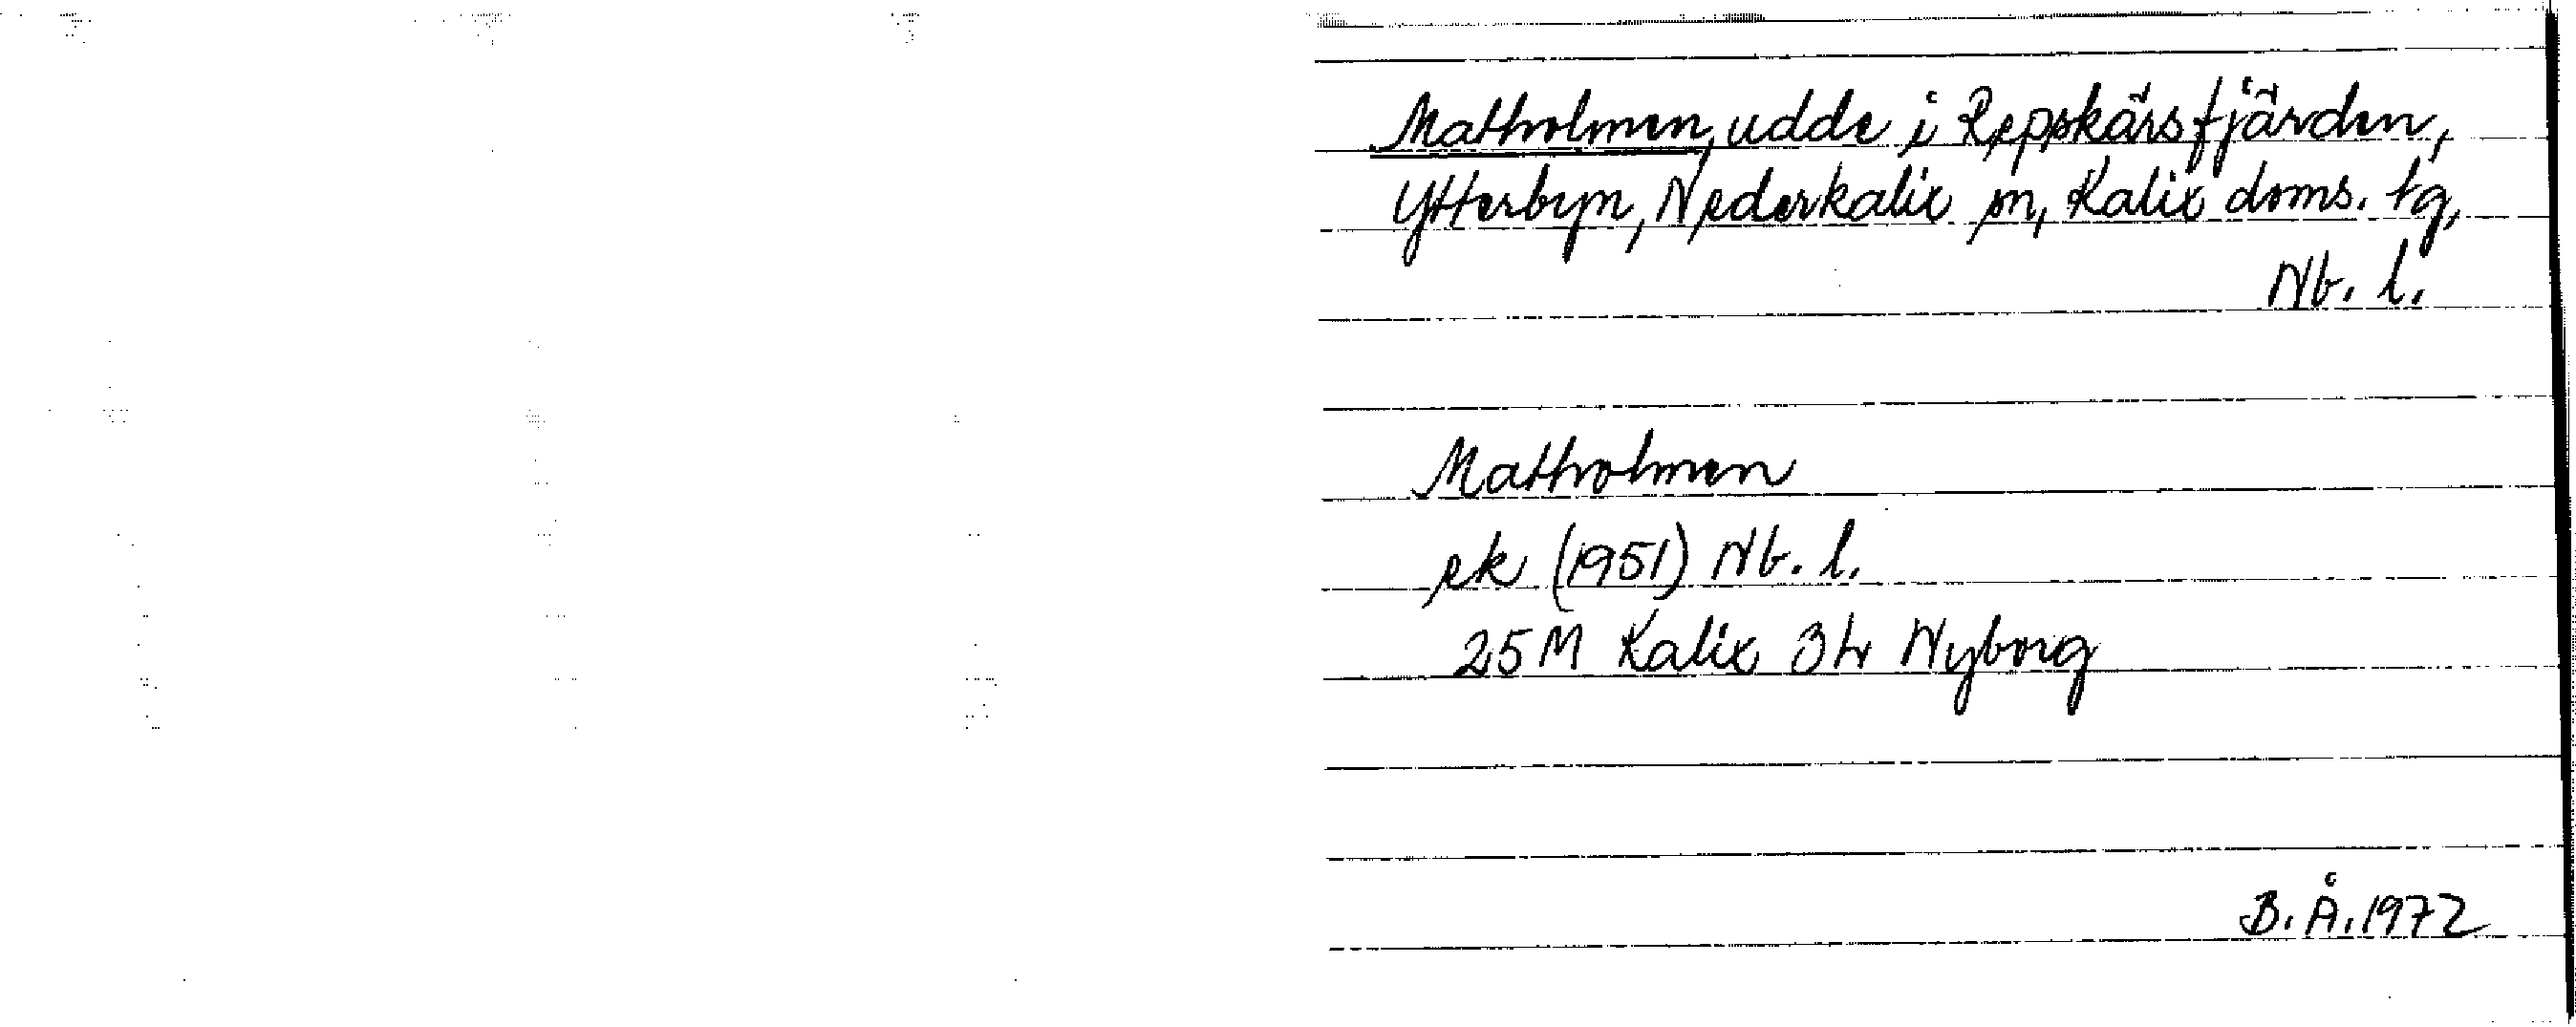 Matholmen, udde i Repskärsfjärden,
Ytterbyn, Nederkalix sn, Kalix doms. tg,
Nb. l.
Matholmen
ek (1951) Nb. l.
25M Kalix 3h Nyborg
B. Å. 1972